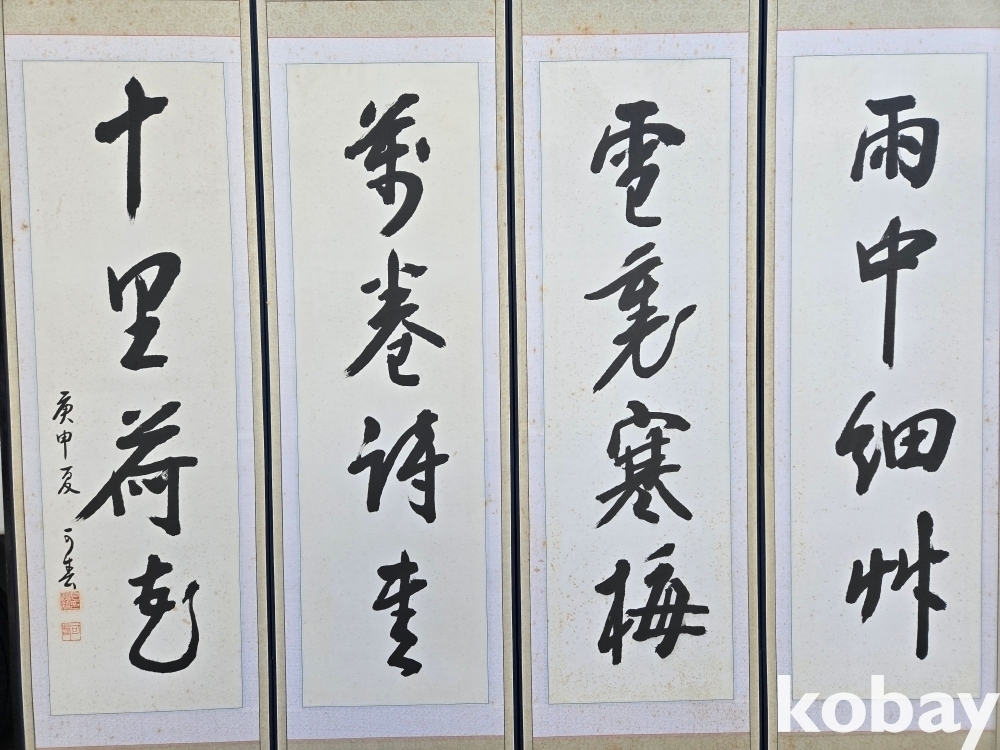 雨中細艸
雪裏寒梅
萬卷詩書
十里荷花
庚申夏
kobay